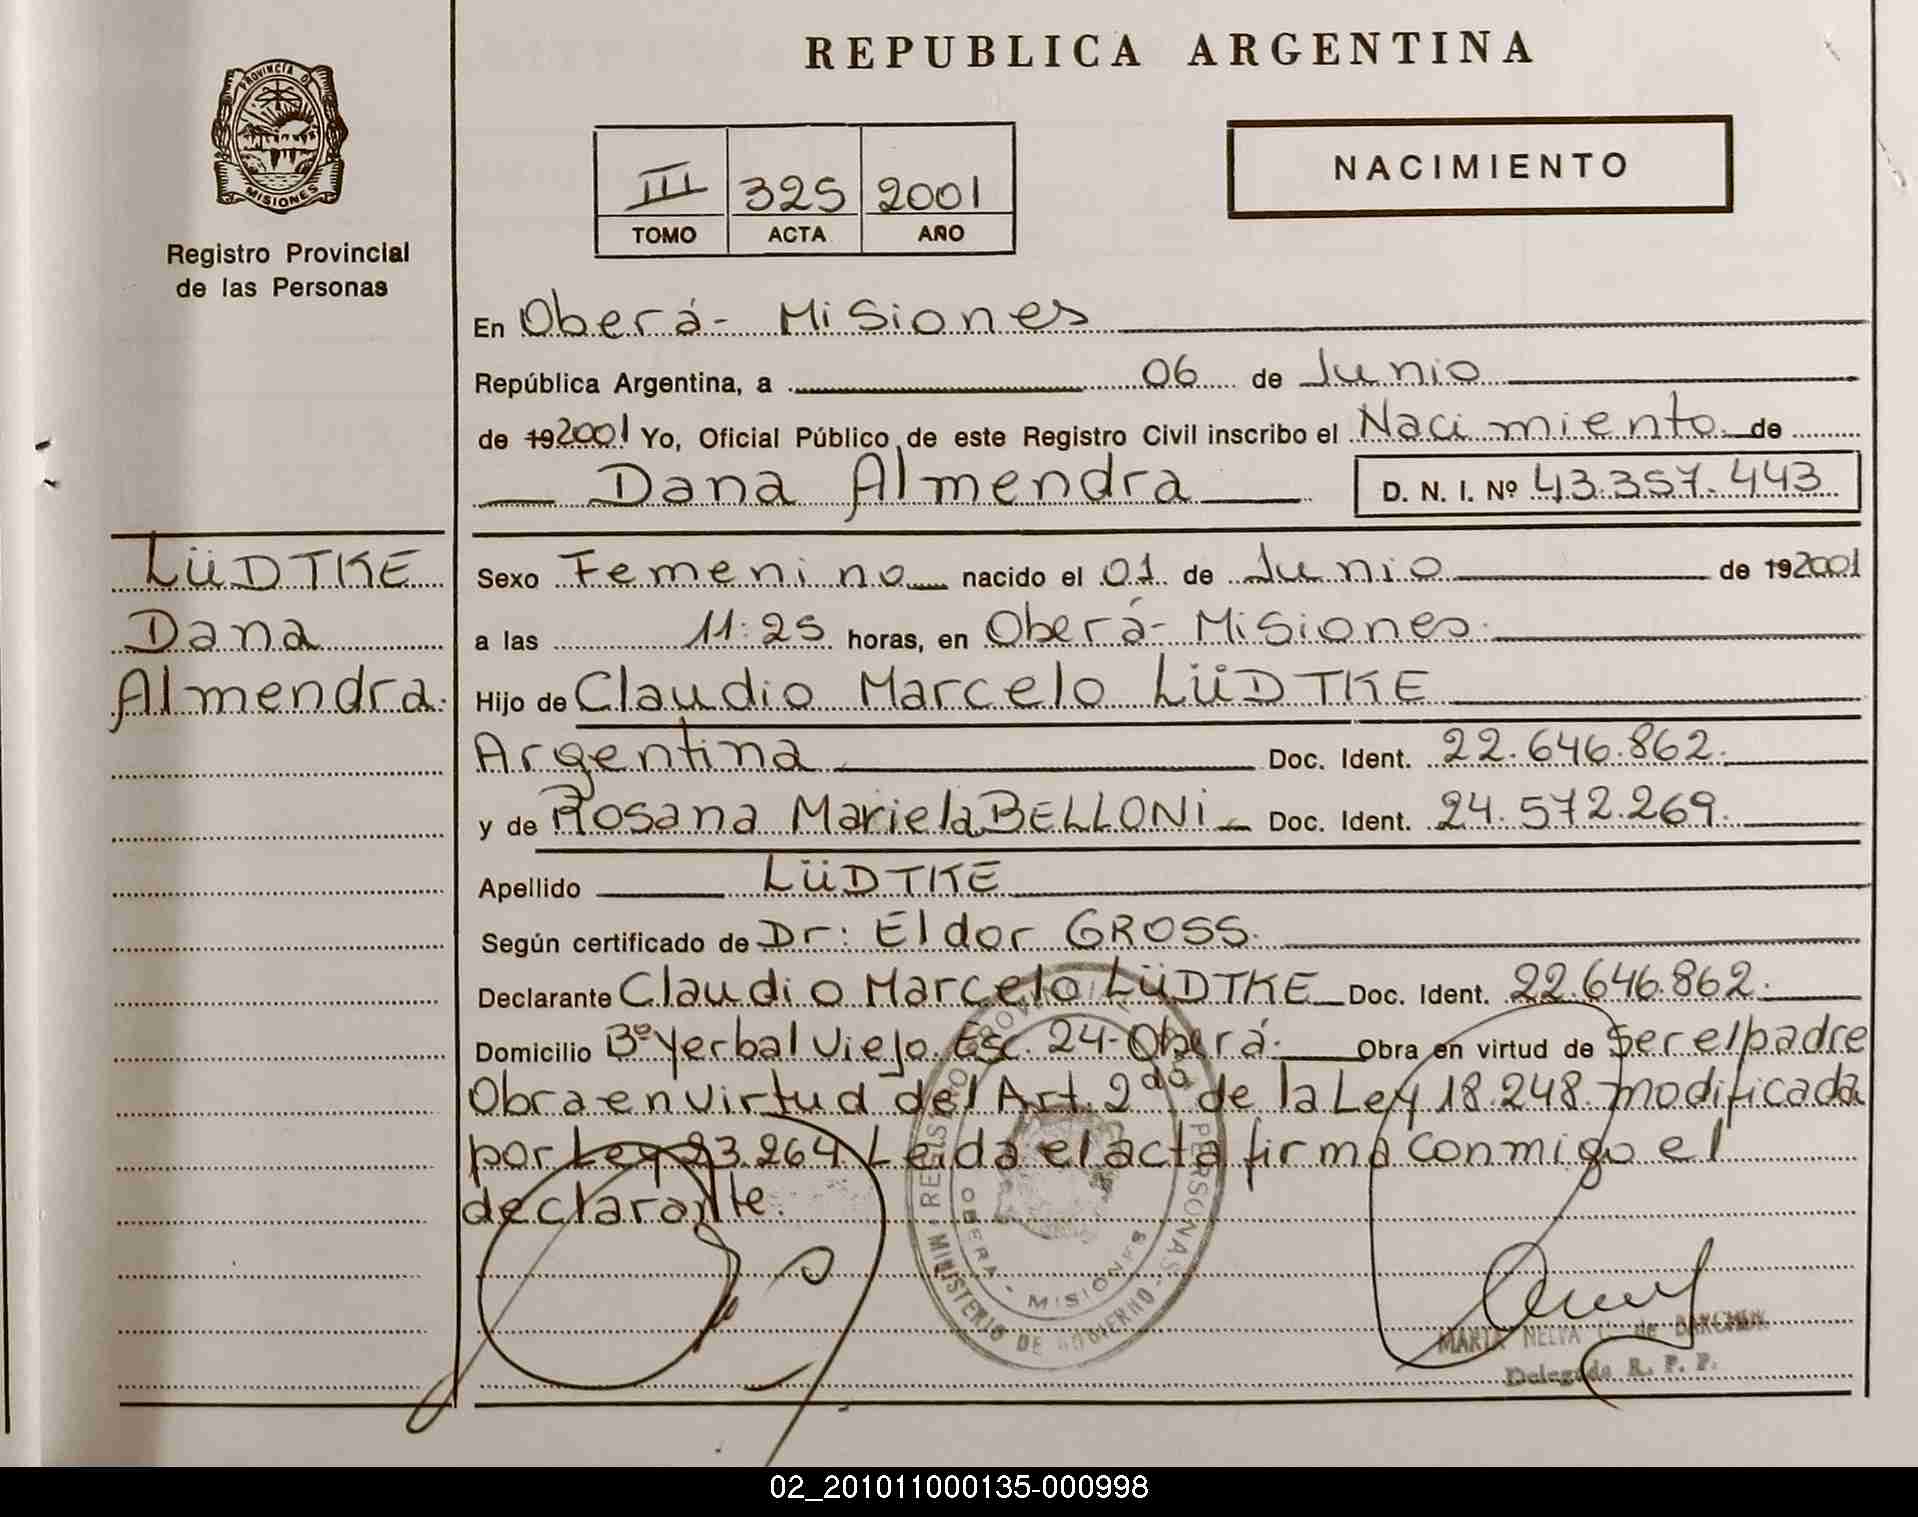 REPUBLICA ARGENTINA
PROVINCIA DE
MISIONES
Registro Provincial
de las Personas
III 325 2001
TOMO ACTA AÑO
NACIMIENTO
En Oberá - Misiones
República Argentina, a 06 de Junio
de 192001 Yo, Oficial Público de este Registro Civil inscribo el Nacimiento de
Dana Almendra D. N. I. Nº 43.357.443
LÜDTKE
Dana
Almendra.
Sexo Femenino nacido el 01 de Junio de 192001
a las 11:25 horas, en Oberá - Misiones.
Hijo de Claudio Marcelo LÜDTKE
Argentina Doc. Ident. 22.646.862.
y de Rosana Mariela BELLONI Doc. Ident. 24.572.269.
Apellido LÜDTKE
Según certificado de Dr: Eldor GROSS.
Declarante Claudio Marcelo LÜDTKE Doc. Ident. 22.646.862.
Domicilio Bº Yerbal Viejo. Esc. 24 - Oberá. Obra en virtud de Ser el padre
Obra en virtud del Art. 2do de la Ley 18.248. modificada
por Ley 23.264. Leida el acta firma conmigo el
declarante.
PERSONAS
OBERA - MISIONES
MINISTERIO DE GOBIERNO
MARIA NELVA de
Delegada R. P. P.
02_201011000135-000998